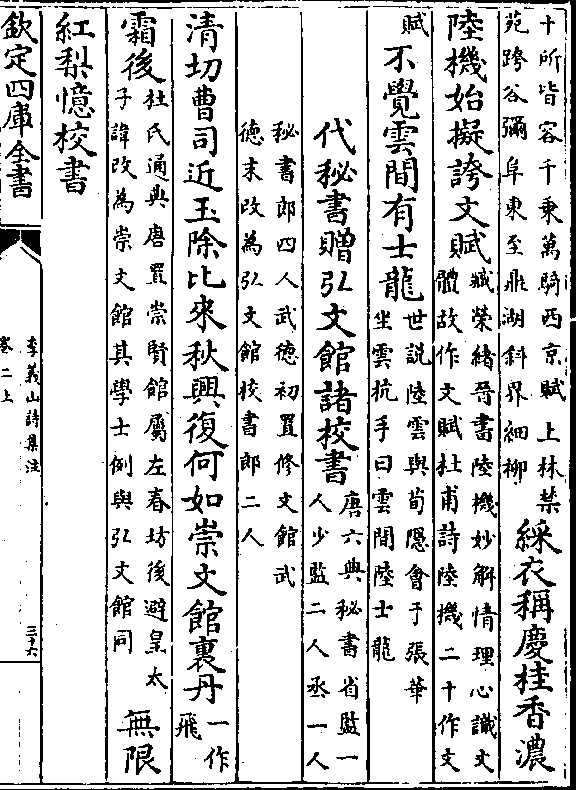 十所皆容千乗萬騎西京賦上林禁
苑跨谷彌阜東至鼎湖斜界細柳
綵衣稱慶桂香濃
陸機始擬誇文賦
臧榮緒晉書陸機妙解情理心識文
體故作文賦杜甫詩陸機二十作文
賦
不覺雲間有士龍
世説陸雲與荀隱會于張華
坐雲抗手曰雲間陸士龍
代秘書贈弘文館諸校書
唐六典秘書省監一
人少監二人丞一人
秘書郎四人武德初置修文館武
德末改為弘文館校書郎二人
清切曹司近玉除比來秋興復何如崇文館裏丹
一作
飛
霜後
杜氏通典唐置崇賢館屬左春坊後避皇太
子諱改為崇文館其學士例與弘文館同
無限
紅梨憶校書
欽定四庫全書
李義山詩集注
卷二上
三十六